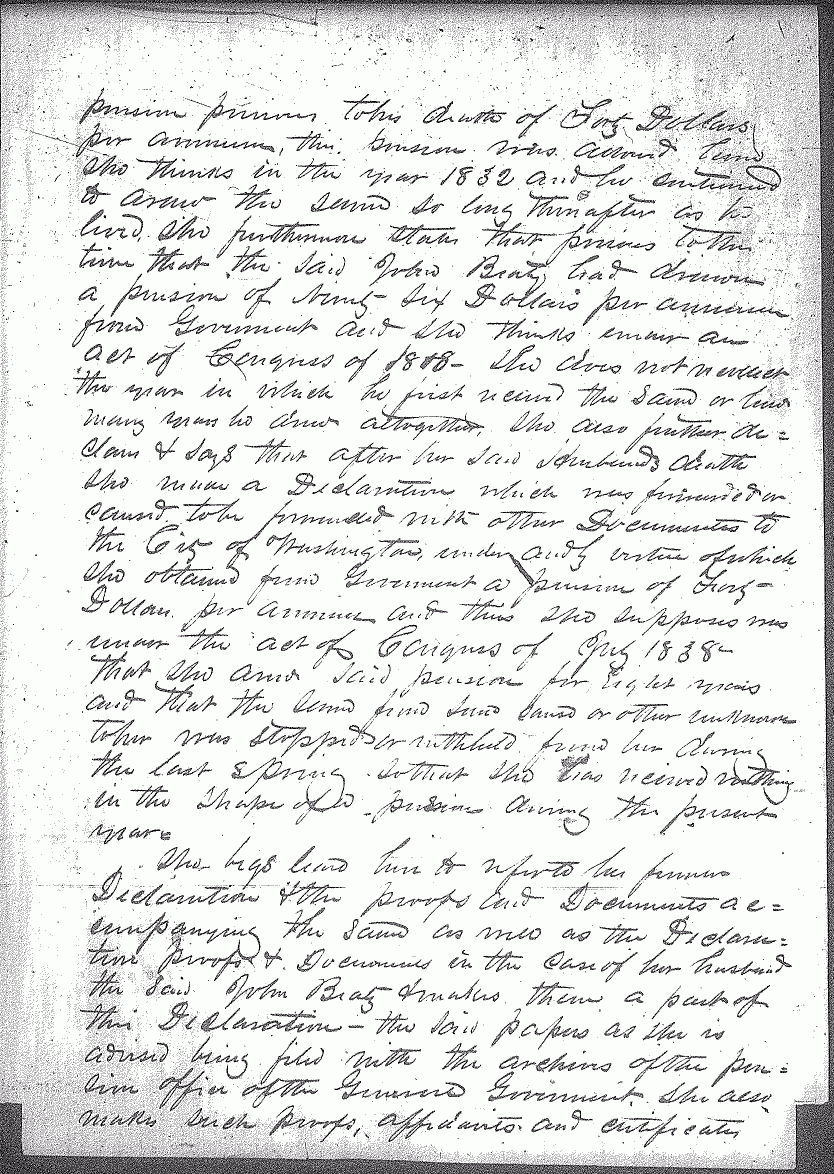 pension previous to his death of Forty Dollars
per annum, this pension was allowed him
she thinks in the year 1832 and he continued
to draw the same so long thereafter as he
lived. She furthermore states that previous to the
time that the said John Beaty had drawn
a pension of Ninety Six Dollars per annum
from Goverment and she thinks under an
act of Congress of 1818 - She does not recollect
the year in which he first recieved the same or how
many years he drew altogether. She also further de=
clares & says that after her said Husbands death
she made a Declaration which was forwarded or
caused to be forwarded with other Documents to
the City of Washington, under and by virtue of which
she obtained from Goverment a pension of Forty
Dollars per annum and this she supposes was
under the act of Congress of July 1838
that she drew said pension for Eight years
and that the same from some cause or other unknown
to her was stopped or withheld from her during
the last Spring so that she has recieved nothing
in the shape of a pension during the present
year=
She begs leave here to refer to her former
Declaration & the proofs and Documents ac=
companying the same as well as the Declara=
tion Proofs & Documents in the case of her husband
the said John Beaty & makes them a part of
this Declaration - the said papers as she is
advised being filed with the archives of the pen=
sion office of the General Goverment. She also
makes such proofs, affidavits and certificates